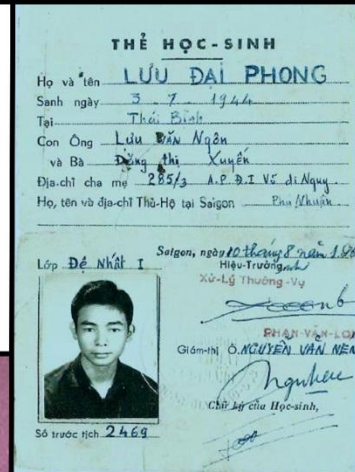 THẺ HỌC-SINH
Họ và tên LƯU ĐẠI PHONG
Sanh ngày 3 - 7 - 1944
Tại Thái Bình
Con Ông Lưu Văn Ngôn
và Bà Đặng thị Xuyến
Địa-chỉ cha mẹ 285/3 A.P Đ.I Võ di Nguy
Họ, tên và địa-chỉ Thủ-Hộ tại Saigon Phú Nhuận
Saigon, ngày 10 tháng 8 năm
Lớp Đệ Nhất I
Hiệu-Trưởng
Xử-Lý Thường-Vụ
PHAN-VĂN
Giám-thị Ô. NGUYỄN VĂN NÊN
Chữ ký của Học-sinh,
Số trước tịch 2469